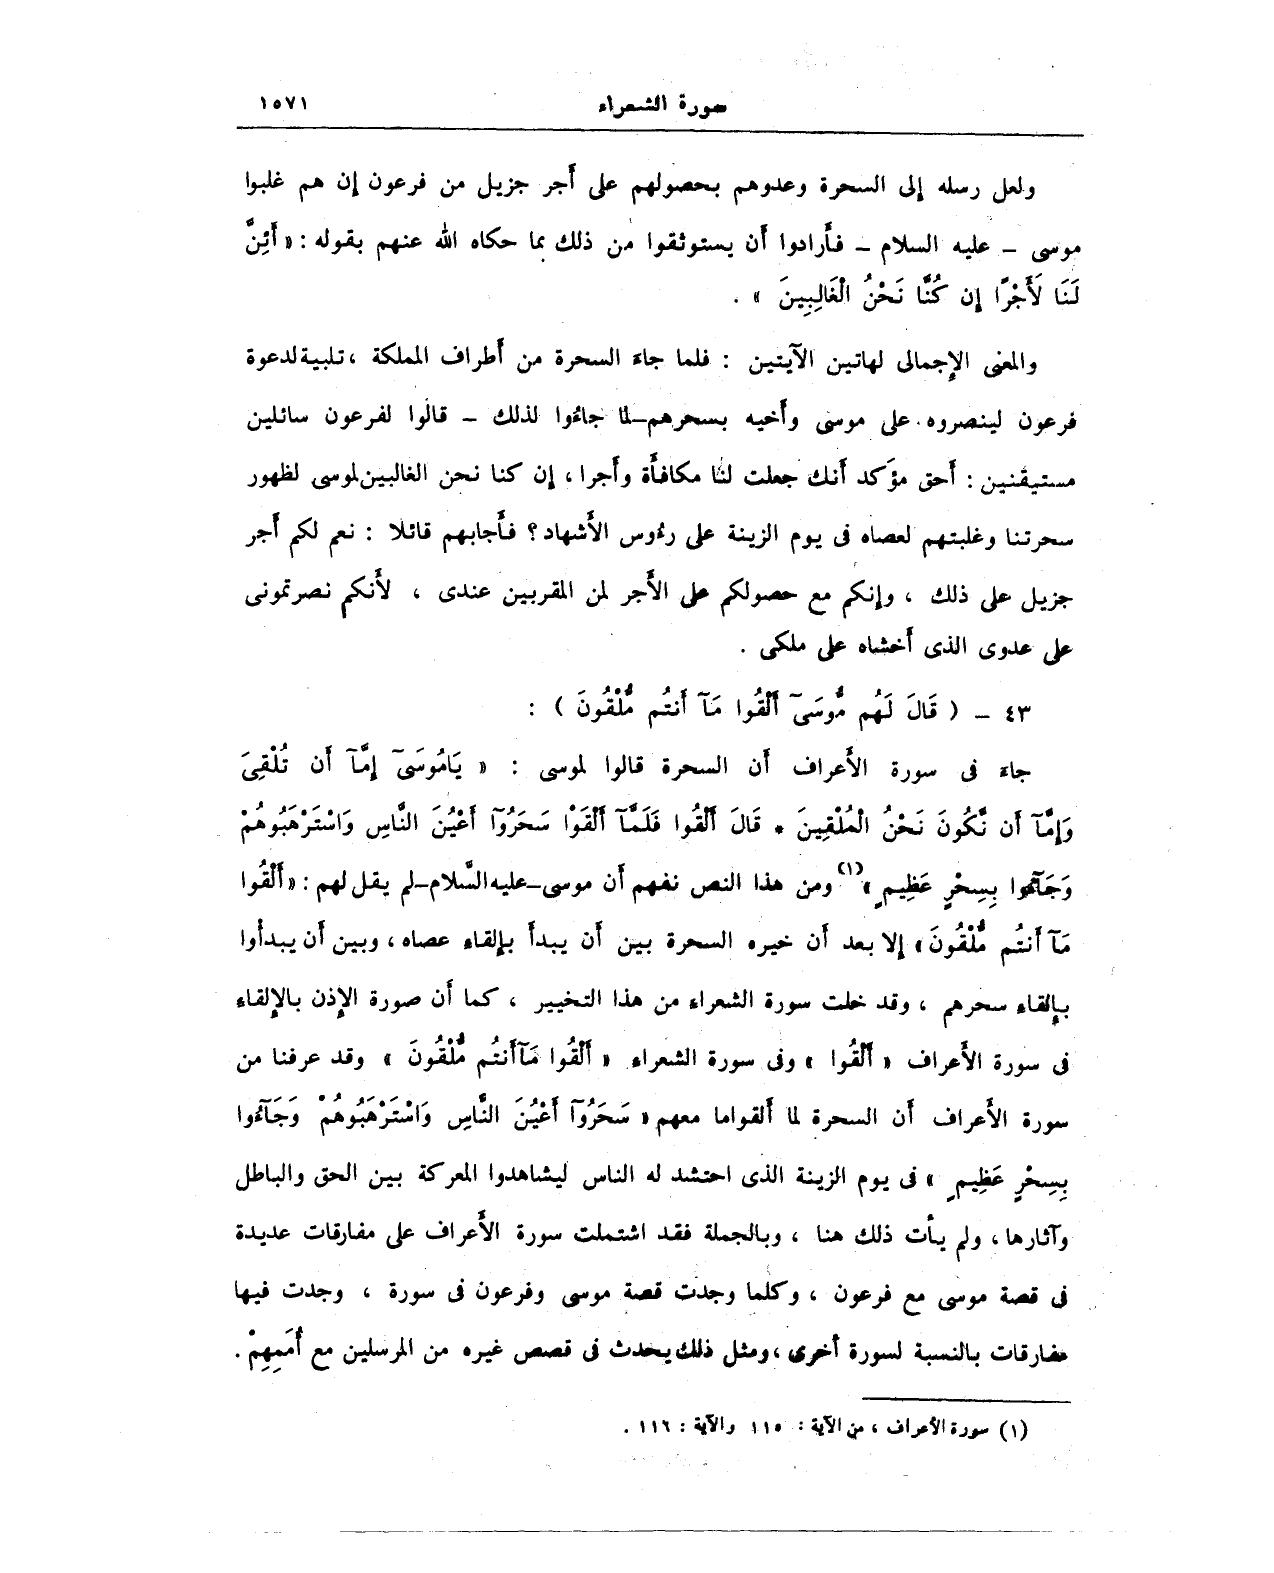 سورة الشعراء ١٥٧١
ولعل رسله إلى السحرة وعدوهم بحصولهم على أجر جزيل من فرعون إن هم غلبوا
موسى – عليه السلام – فأرادوا أن يستوثقوا من ذلك بما حكاه الله عنهم بقوله : « أَئِنَّ
لَنَا لَأَجْرًا إِن كُنَّا نَحْنُ الْغَالِبِينَ » .
والمعنى الإجمالى لهاتين الآيتين : فلما جاءَ السحرة من أطراف المملكة ، تلبية لدعوة
فرعون لينصروه على موسى وأخيه بسحرهم–لما جاءُوا لذلك – قالوا لفرعون سائلين
مستيقنين : أحق مؤكد أنك جعلت لنا مكافأة وأجرا ، إن كنا نحن الغالبين لموسى لظهور
سحرتنا وغلبتهم لعصاه فى يوم الزينة على رءُوس الأشهاد ؟ فأجابهم قائلا : نعم لكم أجر
جزيل على ذلك ، وإنكم مع حصولكم على الأجر لمن المقربين عندى ، لأنكم نصرتمونى
على عدوى الذى أخشاه على ملكى .
٤٣ – ( قَالَ لَهُم مُّوسَىٰٓ أَلْقُوا مَآ أَنتُم مُّلْقُونَ ) :
جاءَ فى سورة الأعراف أن السحرة قالوا لموسى : « يَامُوسَىٰٓ إِمَّآ أَن تُلْقِىَ
وَإِمَّآ أَن نَّكُونَ نَحْنُ الْمُلْقِينَ * قَالَ أَلْقُوا فَلَمَّآ أَلْقَوْا سَحَرُوٓا أَعْيُنَ النَّاسِ وَاسْتَرْهَبُوهُمْ
وَجَآءُوا بِسِحْرٍ عَظِيمٍ »(١) ومن هذا النص نفهم أن موسى–عليه السَّلام–لم يقل لهم : « أَلْقُوا
مَآ أَنتُم مُّلْقُونَ » إلا بعد أن خيره السحرة بين أن يبدأ بإلقاء عصاه ، وبين أن يبدأوا
بإلقاء سحرهم ، وقد خلت سورة الشعراء من هذا التخيير ، كما أن صورة الإذن بالإلقاء
فى سورة الأعراف « أَلْقُوا » وفى سورة الشعراء « أَلْقُوا مَآ أَنتُم مُّلْقُونَ » وقد عرفنا من
سورة الأعراف أن السحرة لما ألقوا ما معهم « سَحَرُوٓا أَعْيُنَ النَّاسِ وَاسْتَرْهَبُوهُمْ وَجَآءُوا
بِسِحْرٍ عَظِيمٍ » فى يوم الزينة الذى احتشد له الناس ليشاهدوا المعركة بين الحق والباطل
وآثارها ، ولم يأت ذلك هنا ، وبالجملة فقد اشتملت سورة الأعراف على مفارقات عديدة
فى قصة موسى مع فرعون ، وكلما وجدت قصة موسى وفرعون فى سورة ، وجدت فيها
مفارقات بالنسبة لسورة أخرى ، ومثل ذلك يحدث فى قصص غيره من المرسلين مع أُمَمِهِمْ .
(١) سورة الأعراف ، من الآية : ١١٥ والآية : ١١٦ .